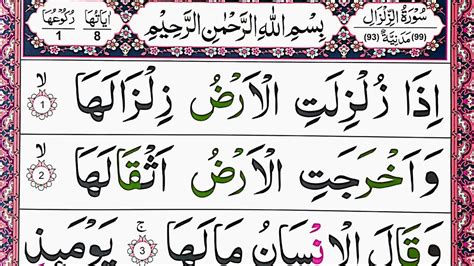 سُوْرَةُ الزِّلْزَالِ
(99) مَدَنِيَّةٌ (93)
بِسْمِ اللهِ الرَّحْمٰنِ الرَّحِيْمِ
اٰيَاتُهَا 8 رُكُوْعُهَا 1
اِذَا زُلْزِلَتِ الْاَرْضُ زِلْزَالَهَا ۙ 1
وَاَخْرَجَتِ الْاَرْضُ اَثْقَالَهَا ۙ 2
وَقَالَ الْاِنْسَانُ مَالَهَا ۚ 3 يَوْمَىِٕذٍ